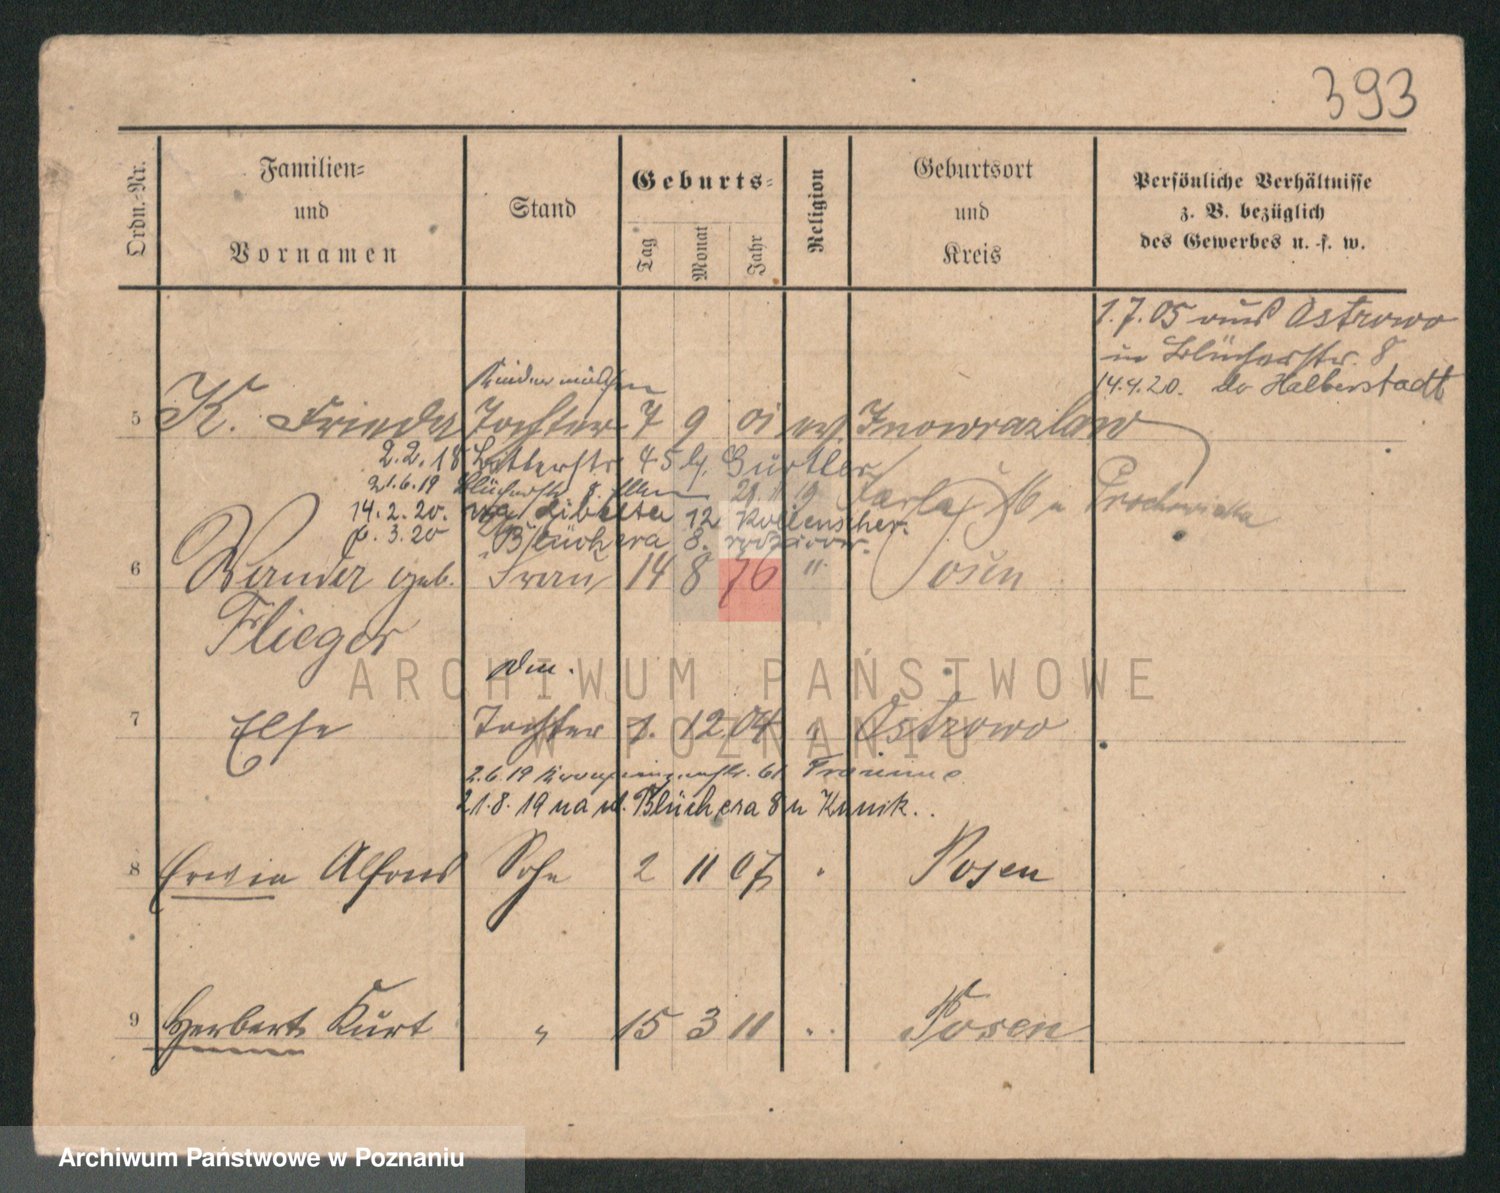 393
Ordn.-Nr.
Familien-
und
Vornamen
Stand
Geburts-
Tag
Monat
Jahr
Religion
Geburtsort
und
Kreis
Persönliche Verhältnisse
z. B. bezüglich
des Gewerbes u. s. w.
1.7.05 aus Ostrowo
in Blücherstr. 8
14.4.20. do Halberstadt
5 K. Frieda Tochter 7 9 01 ev. Inowrazlaw
2.2.18 45 Gürtler
21.6.19 Blücherstr. 8. 21 11 19
14.2.20. Libelta 12 Kollenscher.
3.20 Blüchera 8.
6 Wanda geb. Frau 14 8 76 " Posen
Flieger
7 Else Tochter 1. 12 04 " Ostrowo
2.6.19 61
21.8.19 na ul. Blüchera 8 u Kunik..
8 Erwin Alfons Sohn 2 11 07 " Posen
9 Herbert Kurt " 15 3 11 " Posen
ARCHIWUM PAŃSTWOWE
W POZNANIU
Archiwum Państwowe w Poznaniu